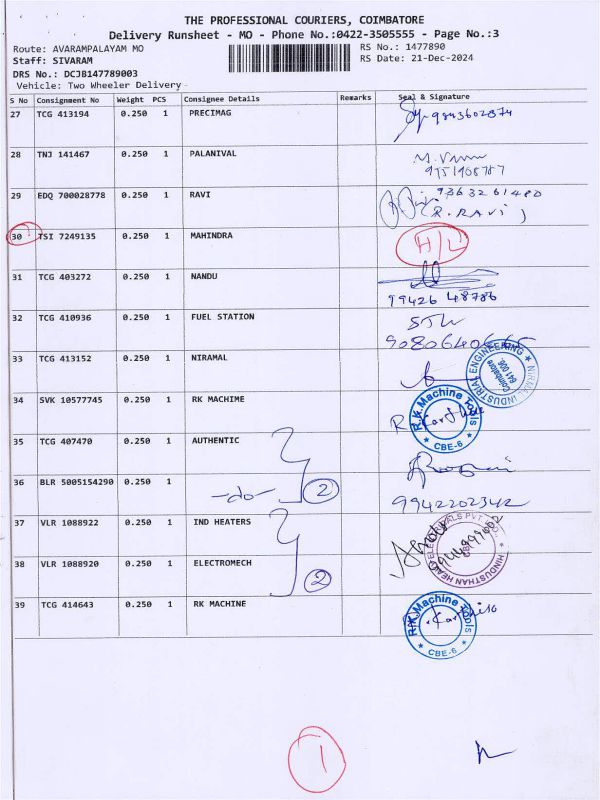 THE PROFESSIONAL COURIERS, COIMBATORE
Delivery Runsheet - MO - Phone No.:0422-3505555 - Page No.:3
Route: AVARAMPALAYAM MO RS No.: 1477890
Staff: SIVARAM RS Date: 21-Dec-2024
DRS No.: DCJB147789003
Vehicle: Two Wheeler Delivery
S No Consignment No Weight PCS Consignee Details Remarks Seal & Signature
27 TCG 413194 0.250 1 PRECIMAG 9843602874
28 TNJ 141467 0.250 1 PALANIVAL
29 EDQ 700028778 0.250 1 RAVI 9363261480
(R.RAVI)
30 TSI 7249135 0.250 1 MAHINDRA H/L
31 TCG 403272 0.250 1 NANDU
99426 48786
32 TCG 410936 0.250 1 FUEL STATION
33 TCG 413152 0.250 1 NIRAMAL NIRMAL INDUSTRIAL ENGINEERING Coimbatore 641 006.
34 SVK 10577745 0.250 1 RK MACHIME R.K Machine Tools CBE-6
35 TCG 407470 0.250 1 AUTHENTIC
36 BLR 5005154290 0.250 1 -do- 2 9942202342
37 VLR 1088922 0.250 1 IND HEATERS
38 VLR 1088920 0.250 1 ELECTROMECH 2
39 TCG 414643 0.250 1 RK MACHINE R.K Machine Tools CBE-6
1